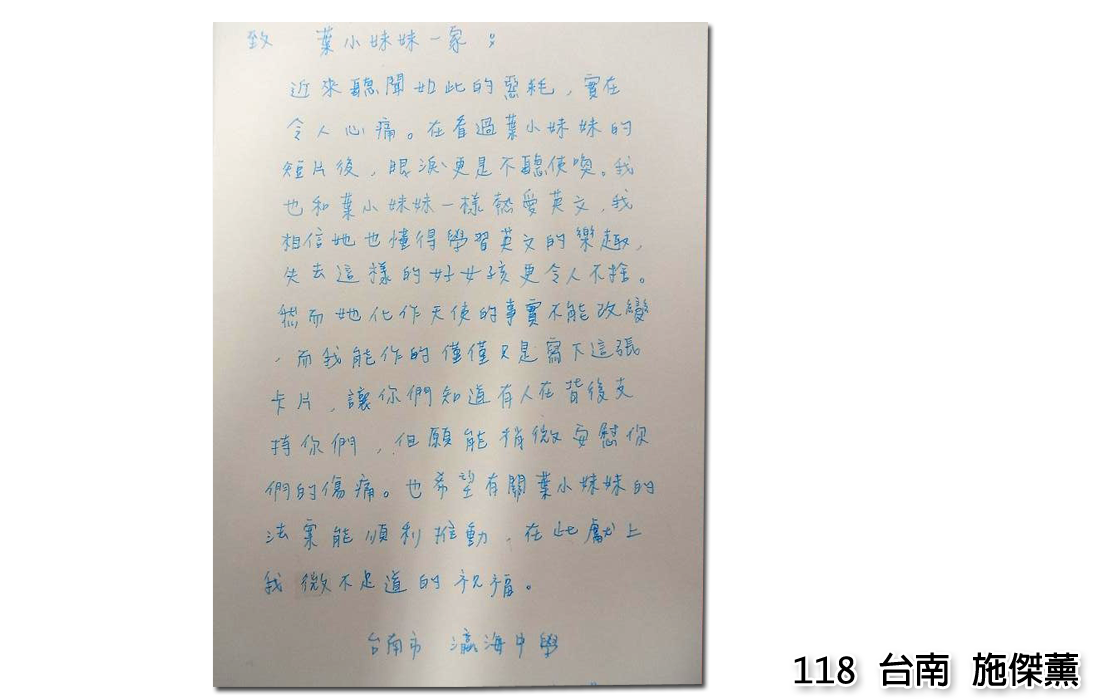 致 葉小妹妹一家：
近來聽聞如此的惡耗，實在
令人心痛。在看過葉小妹妹的
短片後，眼淚更是不聽使喚。我
也和葉小妹妹一樣熱愛英文，我
相信她也懂得學習英文的樂趣，
失去這樣的好女孩更令人不捨。
然而她化作天使的事實不能改變
，而我能作的僅僅只是寫下這張
卡片，讓你們知道有人在背後支
持你們，但願能稍微安慰你
們的傷痛。也希望有關葉小妹妹的
法案能順利推動，在此獻上
我微不足道的祝福。
台南市 瀛海中學
118 台南 施傑薰